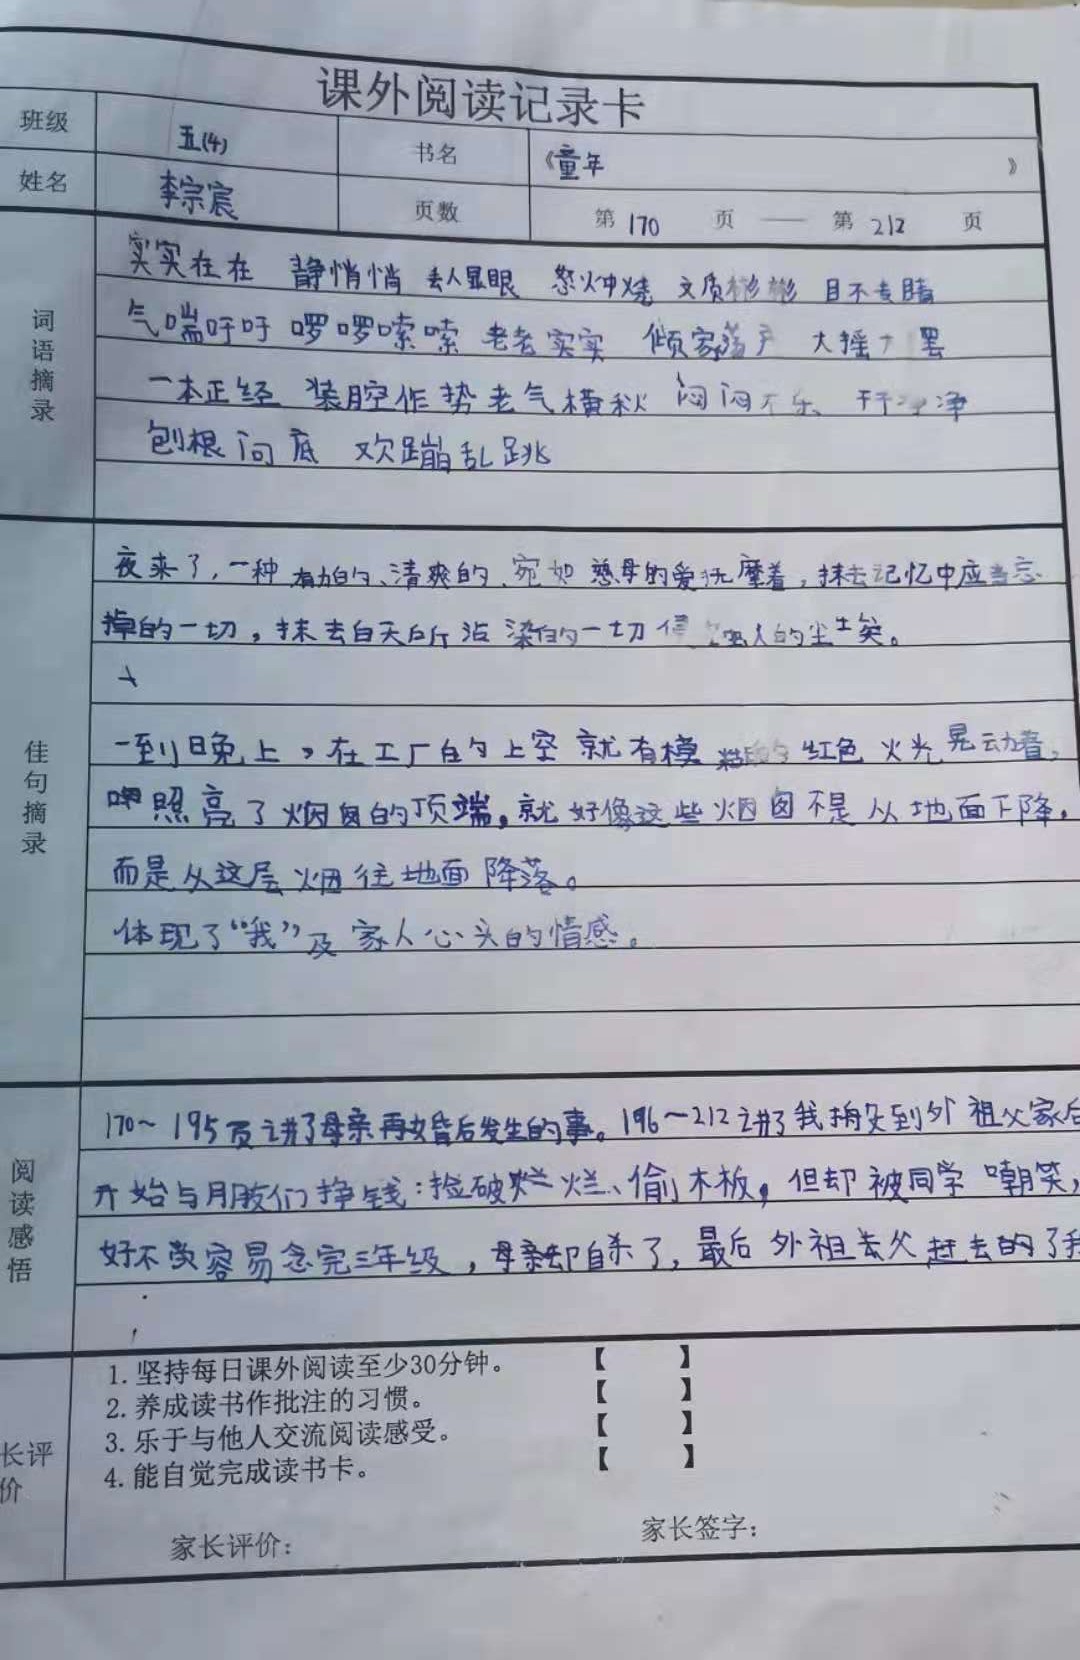 课外阅读记录卡
班级 五(4) 书名 《童年 》
姓名 李宗宸 页数 第170 页 —— 第212 页
词语摘录
实实在在 静悄悄 丢人显眼 怒火中烧 文质彬彬 目不专睛
气喘吁吁 啰啰嗦嗦 老老实实 倾家荡产 大摇大罢
一本正经 装腔作势 老气横秋 闷闷不乐 干干净净
刨根问底 欢蹦乱跳
佳句摘录
夜来了,一种有力的、清爽的、宛如慈母的爱抚摩着,抹去记忆中应当忘
掉的一切,抹去白天所沾染的一切 人的尘土矣。
一到晚上,在工厂的上空就有模糊的红色火光晃动着,
照亮了烟囱的顶端,就好像这些烟囱不是从地面下降,
而是从这层烟往地面降落。
体现了“我”及家人心头的情感。
阅读感悟
170~195页讲了母亲再婚后发生的事。196~212讲了我搬到外祖父家后
开始与朋友们挣钱:捡破烂烂、偷木板,但却被同学嘲笑,
好不容易念完三年级,母亲却自杀了,最后外祖父赶去的了我
长评价
1.坚持每日课外阅读至少30分钟。 【 】
2.养成读书作批注的习惯。 【 】
3.乐于与他人交流阅读感受。 【 】
4.能自觉完成读书卡。 【 】
家长评价: 家长签字: